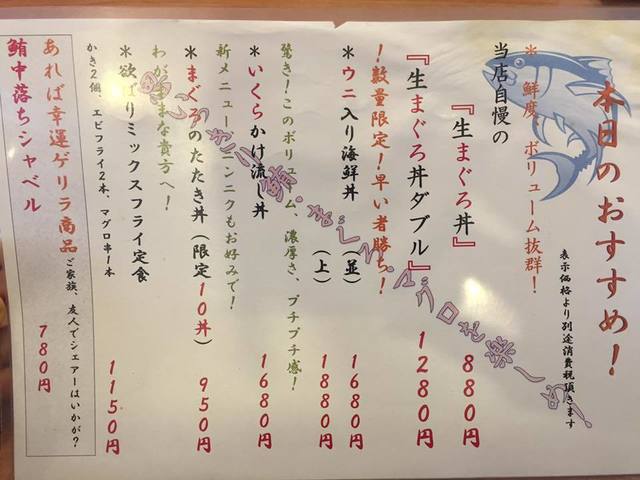 本日のおすすめ!
表示価格より別途消費税頂きます
*鮮度、ボリューム抜群!
当店自慢の
『生まぐろ丼』 880円
『生まぐろ丼ダブル』 1280円
!数量限定!早い者勝ち!
*ウニ入り海鮮丼(並) 1680円
(上) 1880円
驚き!このボリューム、濃厚さ、プチプチ感!
*いくらかけ流し丼 1680円
新メニュー ニンニクもお好みで!
*まぐろのたたき丼(限定10丼) 950円
わがままな貴方へ!
*欲ばりミックスフライ定食 1150円
かき2個、エビフライ2本、マグロ串1本
あれば幸運ゲリラ商品
ご家族、友人でシェアーはいかが?
鮪中落ちシャベル 780円
思いっきり鮪・まぐろ・マグロを楽しめ!